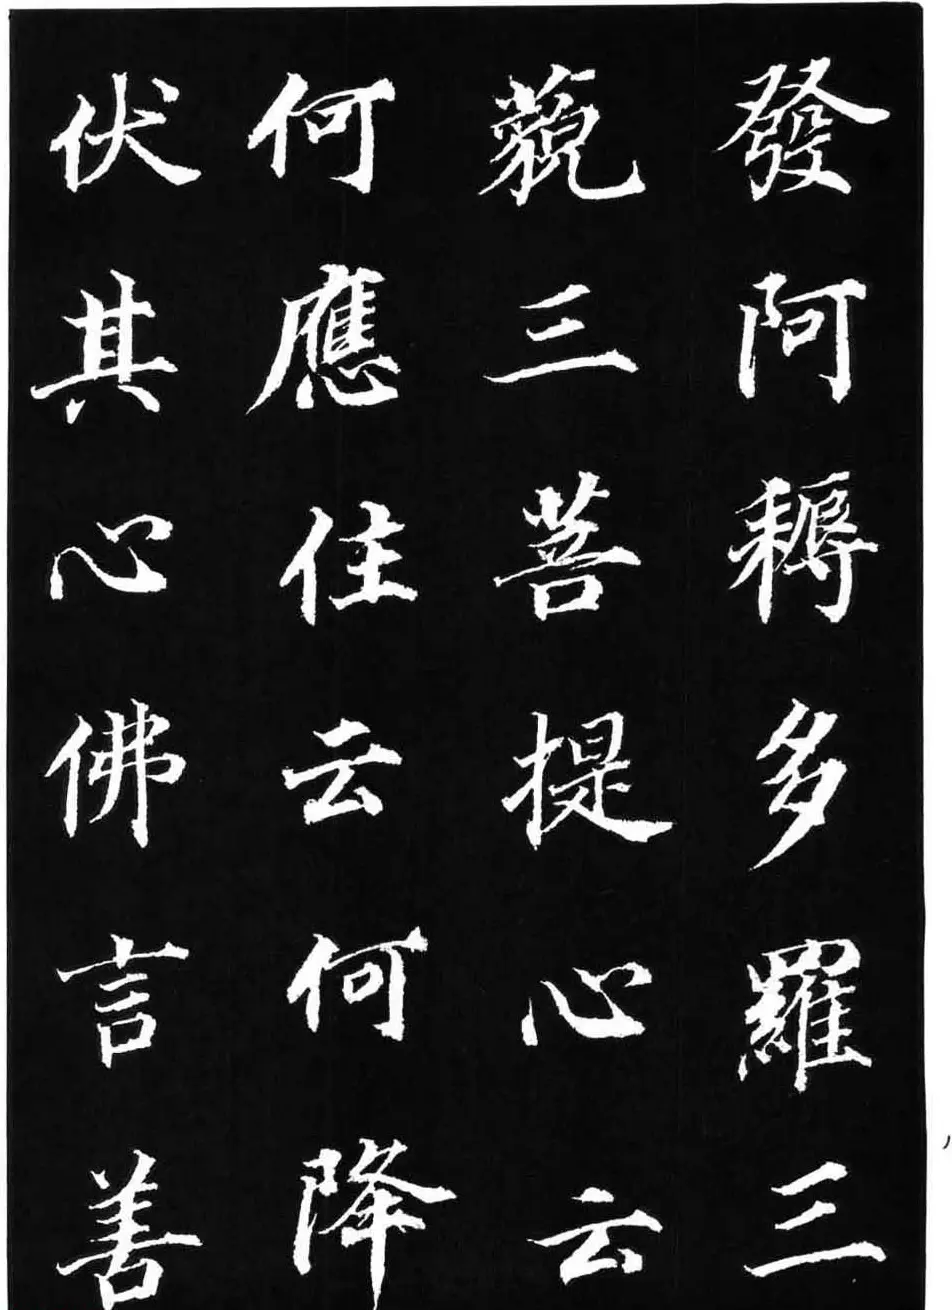 發阿耨多羅三
藐三菩提心云
何應住云何降
伏其心佛言善